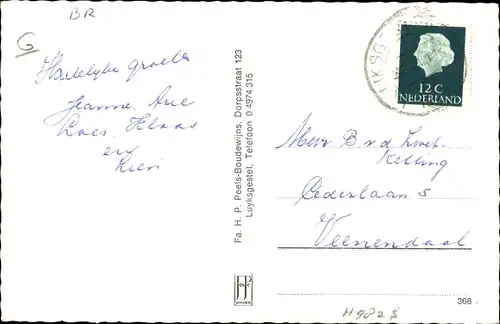 BR
G
Hartelijke groeten
Jeanne, Arie
Loes, Klaas
en
Rien
Fa. H. P. Peels-Boudewijns, Dorpsstraat 123
Luyksgestel, Telefoon 0 4974 315
12 C
NEDERLAND
Meneer B v. d.
Ketting
Cederlaan 5
Veenendaal
368
H 982 S